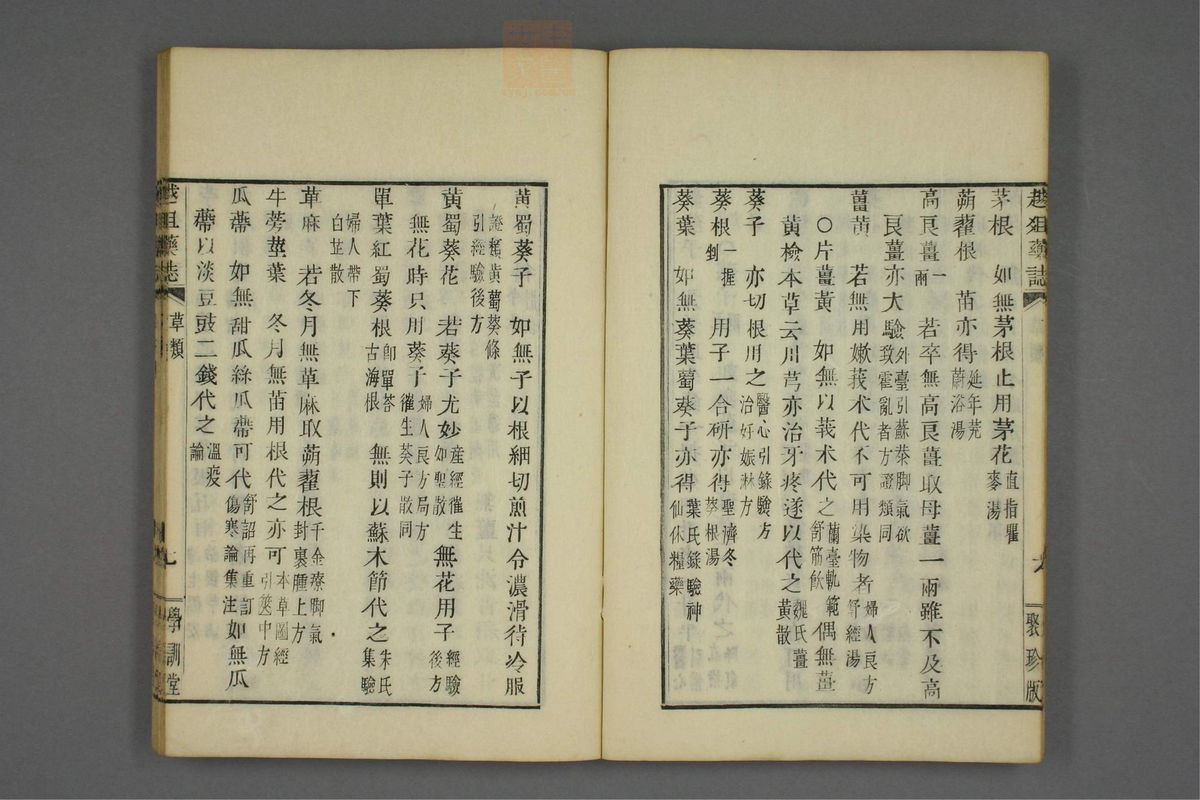 越俎藥誌
聚珍版
茅根　如無茅根止用茅花直指瞿麥湯
蒴藋根　苗亦得延年茺蔚浴湯
高良薑一兩　若卒無高良薑取母薑一兩雖不及高
良薑亦大驗外臺引蘇恭脚氣欲致霍亂者方證類同
薑黄　若無用嫩莪术代不可用染物者婦人良方舒經湯
○片薑黃　如無以莪术代之蘭臺軌範舒筋飲偶無薑
黃檢本草云川芎亦治牙疼遂以代之魏氏薑黃散
葵子　亦切根用之醫心引錄驗方治妊娠淋方
葵根一握剉　用子一合研亦得聖濟冬葵根湯
葵葉　如無葵葉蜀葵子亦得葉氏錄驗神仙休糧藥
黃蜀葵子　如無子以根細切煎汁令濃滑待冷服
證類黃蜀葵條引經驗後方
黃蜀葵花　若葵子尤妙産經催生如聖散　無花用子經驗後方
無花時只用葵子婦人良方局方催生葵子散同
單葉紅蜀葵根卽單苔古海根　無則以蘇木節代之朱氏集驗
婦人帶下白芷散
萆麻　若冬月無萆麻取蒴藋根千金療脚氣封裹腫上方
牛蒡莖葉　冬月無苗用根代之亦可本草圖經引篋中方
瓜蔕　如無甜瓜絲瓜蔕可代舒詔再重訂傷寒論集注如無瓜
蔕以淡豆豉二錢代之溫疫論
越俎藥誌
草類
七
學訓堂